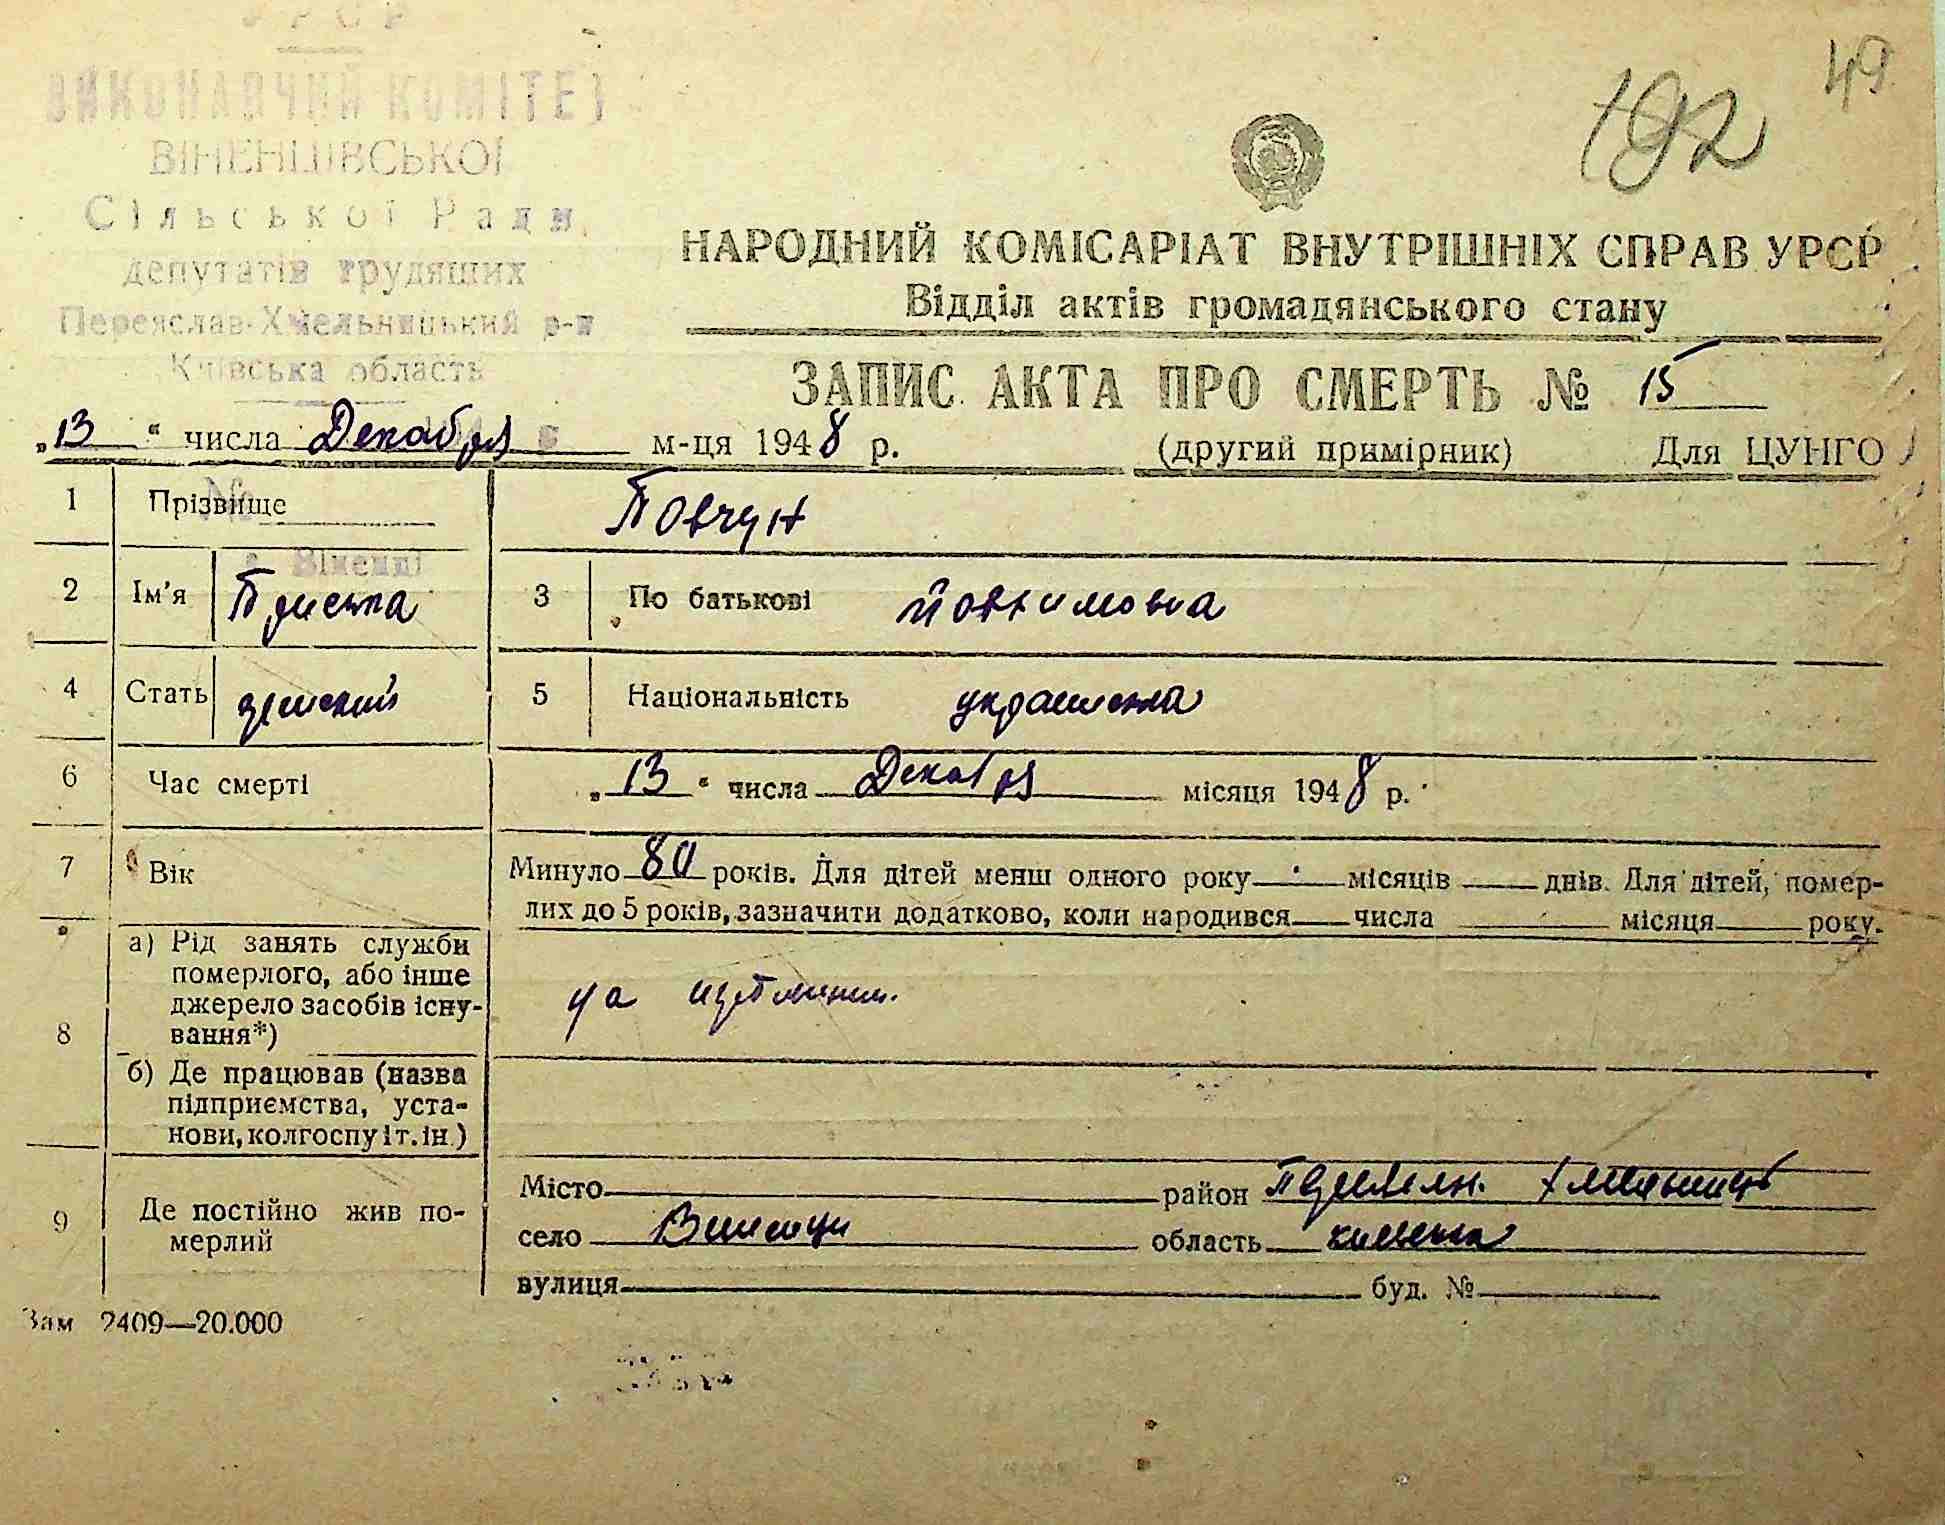 УРСР
ВИКОНАВЧИЙ КОМІТЕТ
ВІНЕНЦІВСЬКОЇ
Сільської Ради
депутатів трудящих
Переяслав-Хмельницький р-н
Київська область
192
49
НАРОДНИЙ КОМІСАРІАТ ВНУТРІШНІХ СПРАВ УРСР
Відділ актів громадянського стану
ЗАПИС АКТА ПРО СМЕРТЬ № 15
„13“ числа Декабря м-ця 1948 р. (другий примірник) Для ЦУНГО
1 Прізвище Повчун
№
с. Віненці
2 Ім'я Приська 3 По батькові Йовхимовна
4 Стать женский 5 Національність украинка
6 Час смерті „13“ числа Декабря місяця 1948 р.
7 Вік Минуло 80 років. Для дітей менш одного року місяців днів. Для дітей, помер-
лих до 5 років, зазначити додатково, коли народився числа місяця року.
8 а) Рід занять служби
померлого, або інше
джерело засобів існу-
вання*)
на
б) Де працював (назва
підприємства, уста-
нови, колгоспу і т. ін.)
9 Де постійно жив по-
мерлий
Місто район Хмельниць
село Виненци область киевска
вулиця буд. №
Зам 2409—20.000